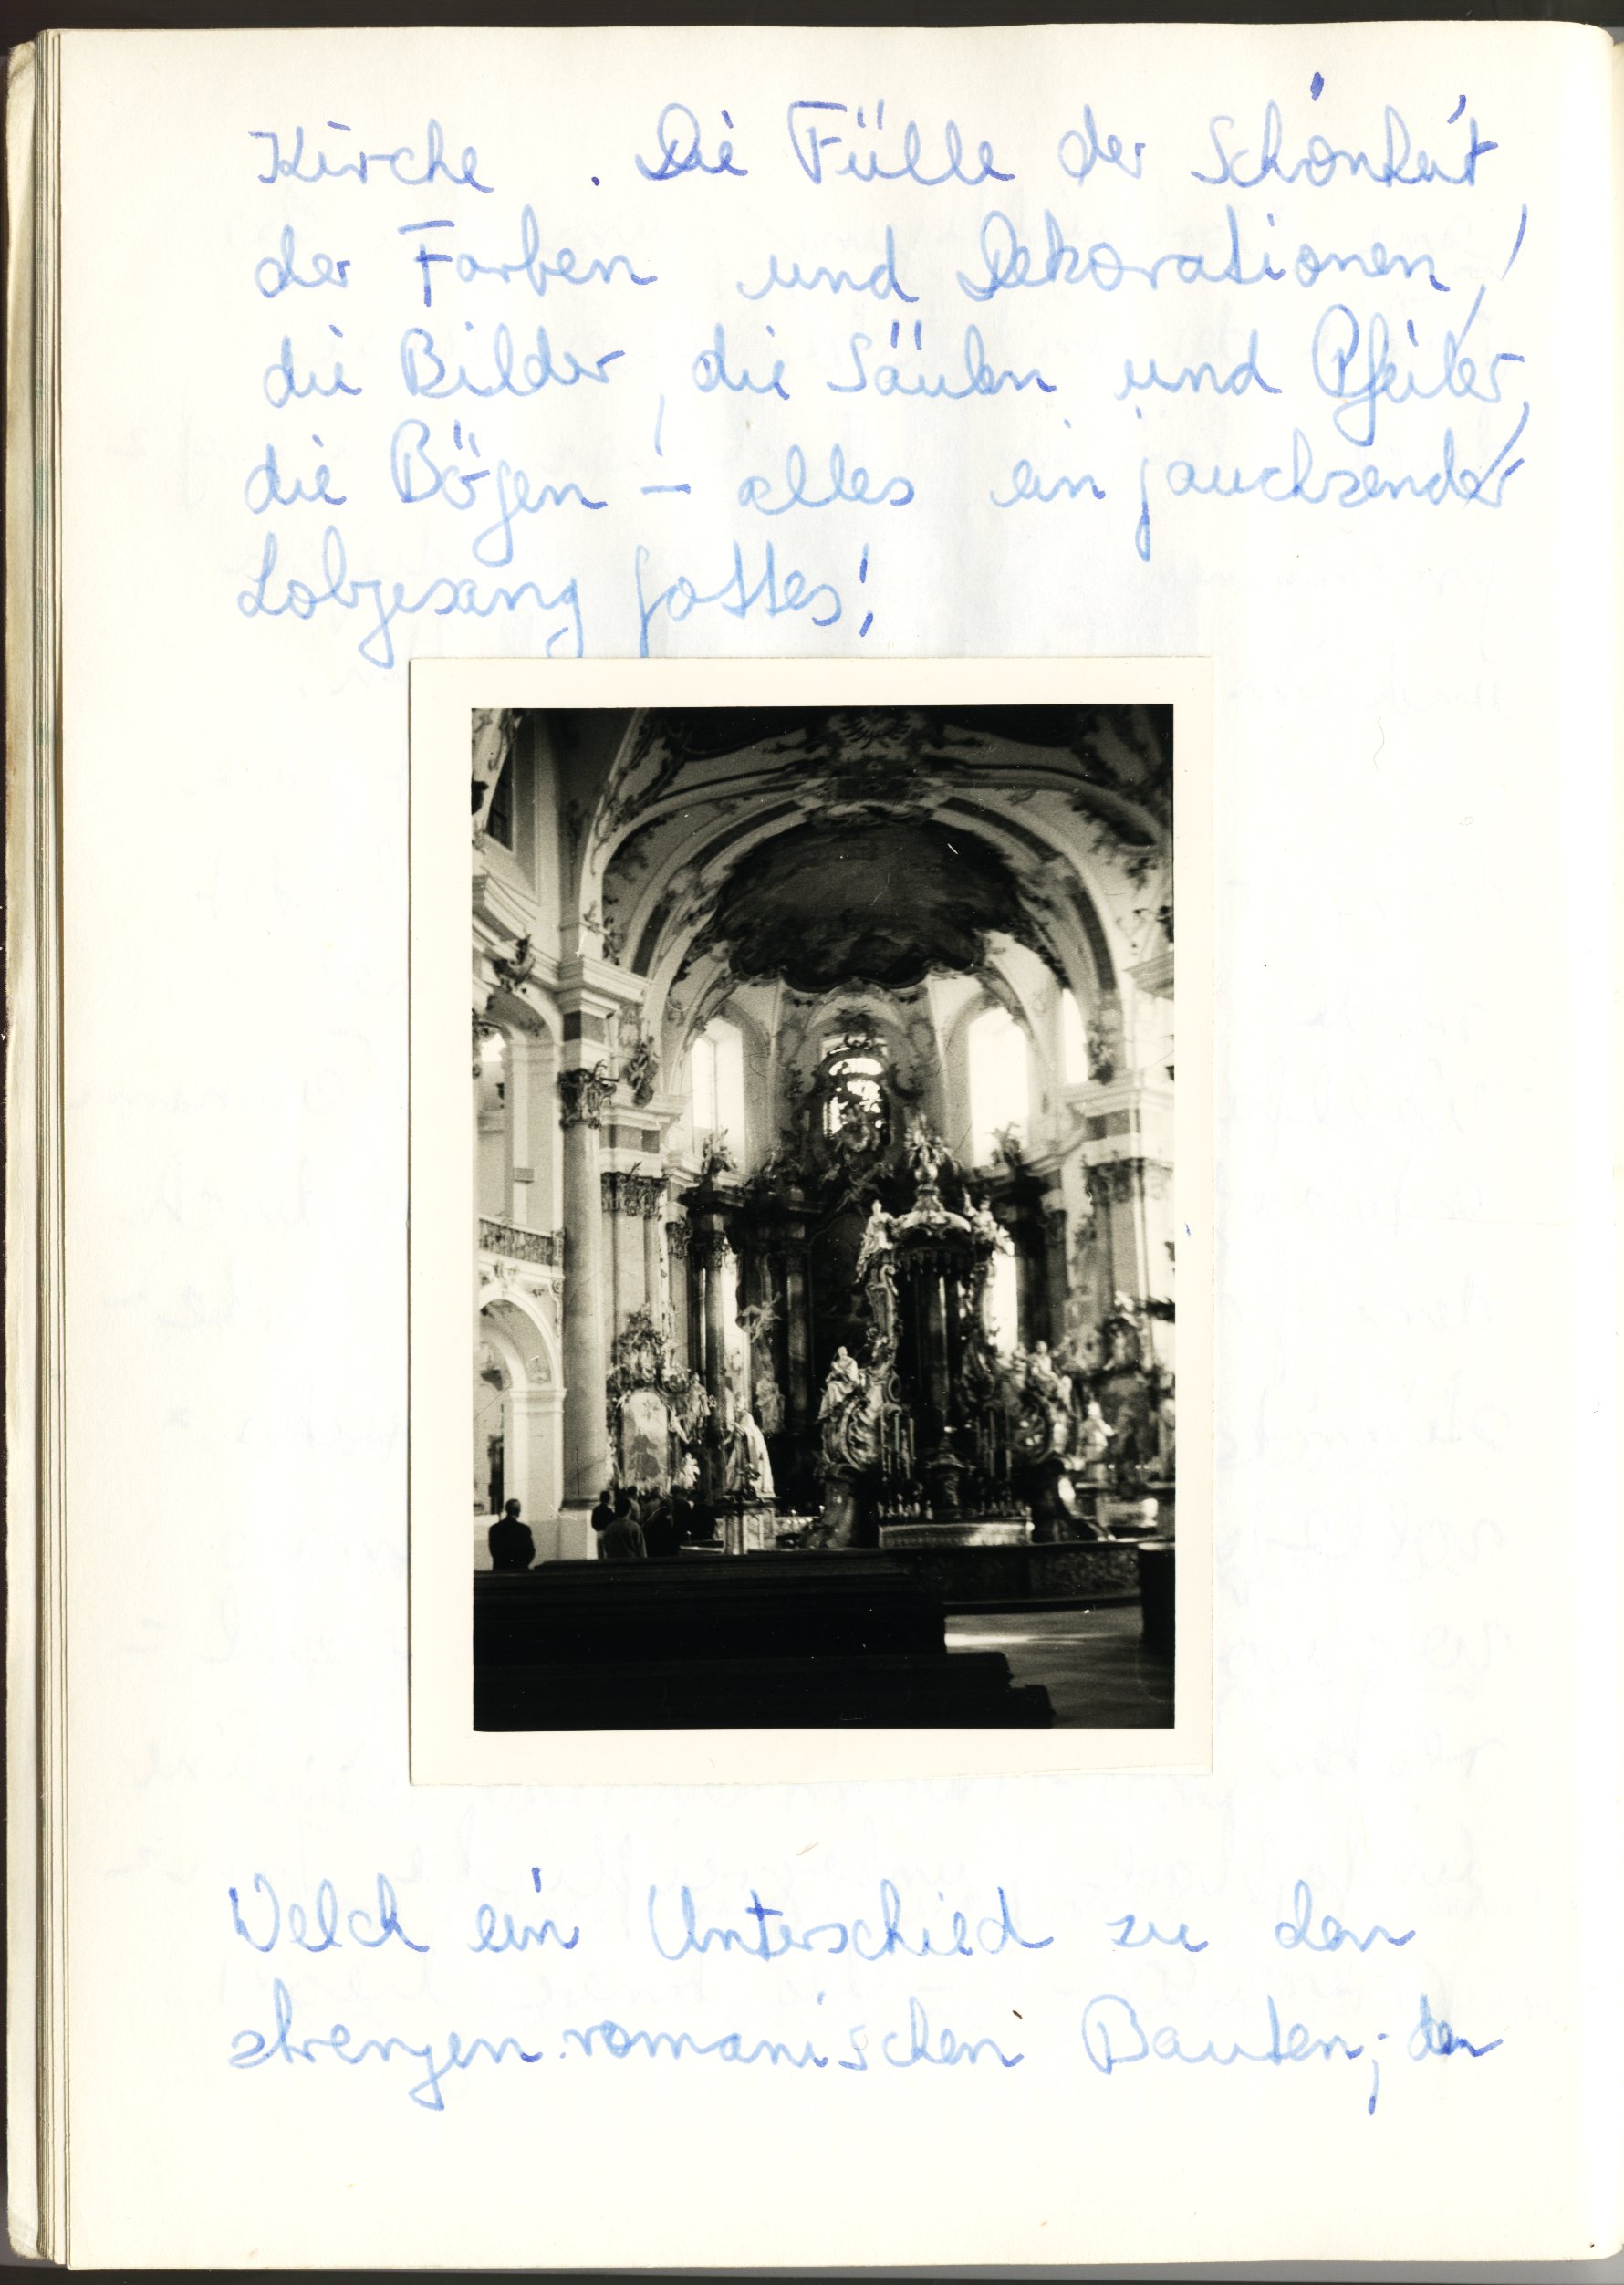 Kirche . Die Fülle der Schönheit,
der Farben und Dekorationen,
die Bilder, die Säulen und Pfeiler,
die Bögen – alles ein jauchzender
Lobgesang Gottes!
Welch ein Unterschied zu den
strengen romanischen Bauten, den